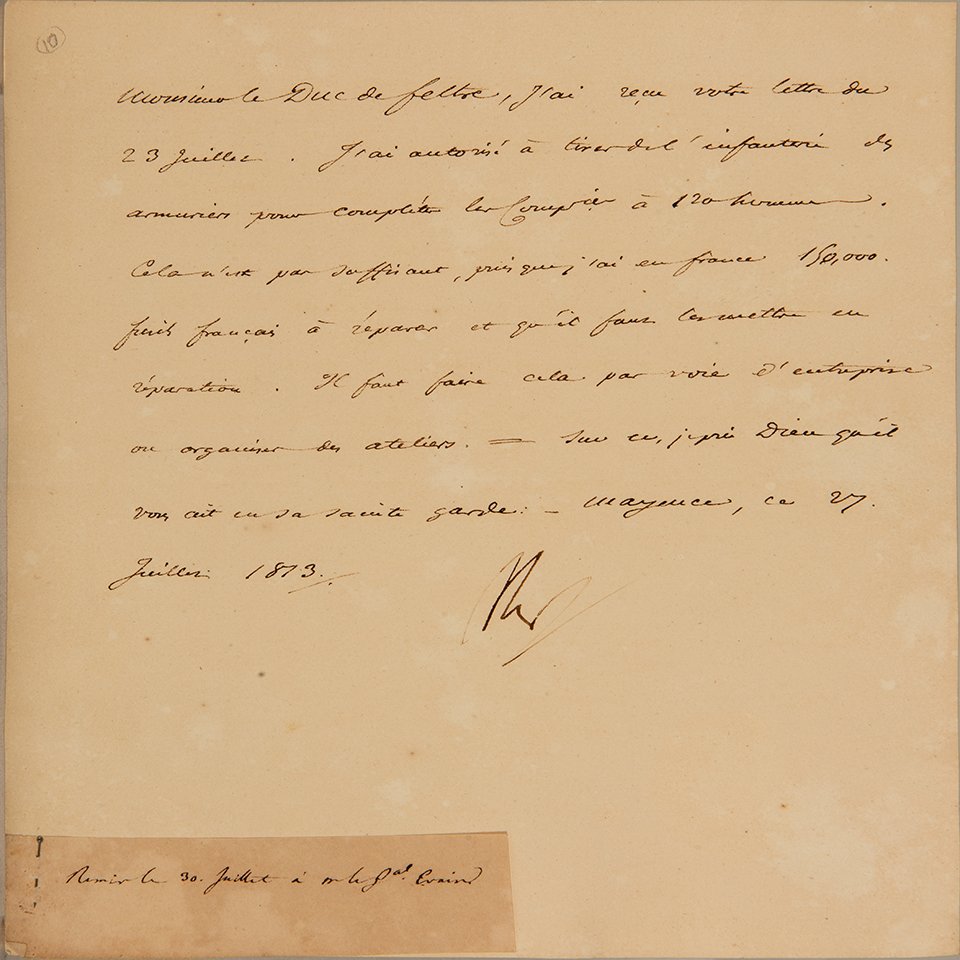 10
Monsieur le Duc de feltre, J'ai reçu votre lettre du
23 Juillet. J'ai autorisé à tirer de l'infanterie des
armuriers pour compléter les Compies à 120 hommes.
Cela n'est pas suffisant, puisque j'ai en france 150,000.
fusils français à réparer et qu'il faut les mettre en
réparation. Il faut faire cela par voie d'entreprise
ou organiser des ateliers. = Sur ce, je prie Dieu qu'il
vous ait en sa sainte garde. - Mayence, ce 27.
Juillet 1813.
Remis le 30. Juillet à mr le Gal. Evain